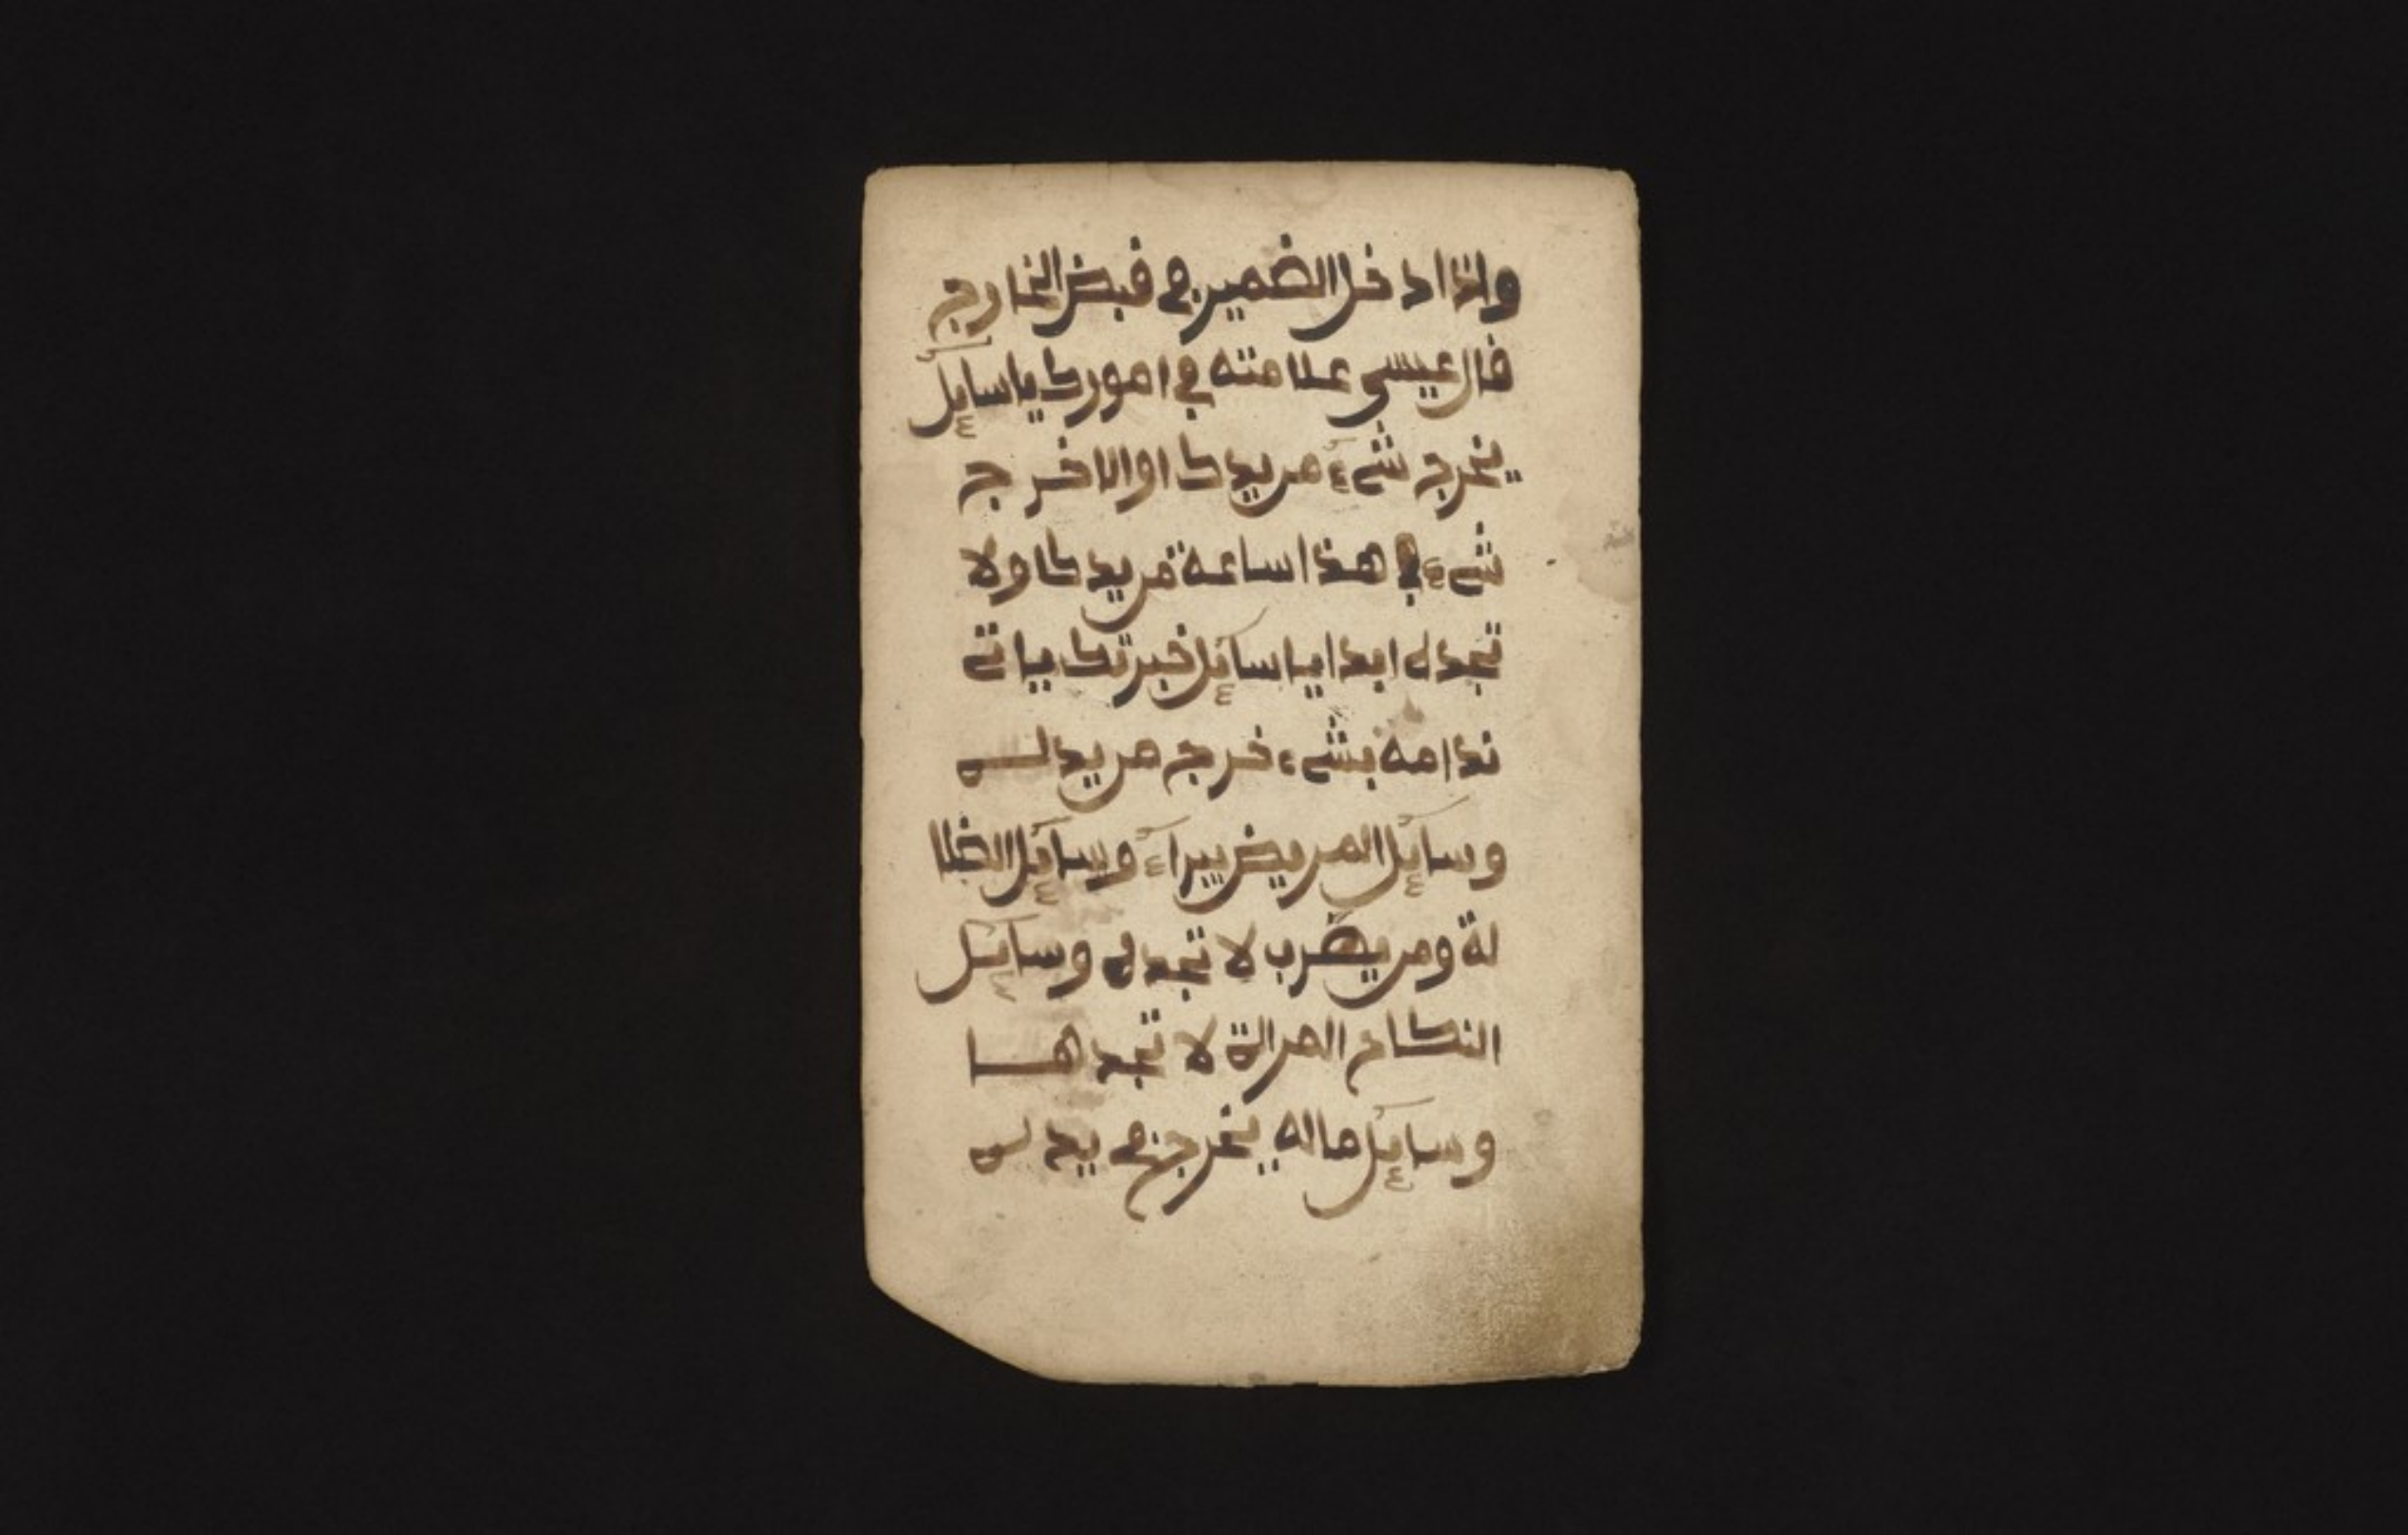 واذا دخل الضمير في قبض الخارج
قال عيسى علامته في امورك ياسايل
يخرج شيء من يدك اوالا خرج
شيء هذا ساعة من يدك ولا
تجده ابدا ياسائل خبرتك ياتي
ندامه بشيء خرج من يدك
وسايل المريض يبراء وسايل الضلا
لة ومن يهرب لا تجده وسايل
النكاح المراة لا تجدها
وسايل ماله يخرج من يده